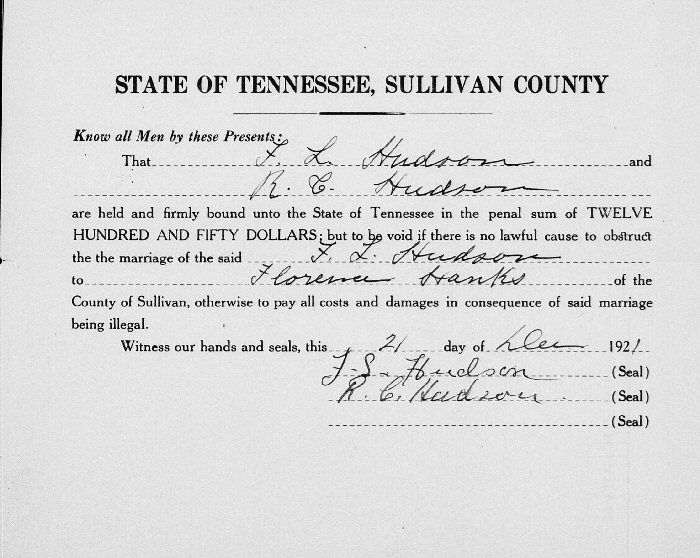 STATE OF TENNESSEE, SULLIVAN COUNTY
Know all Men by these Presents:
That F. L. Hudson and
R. C. Hudson
are held and firmly bound unto the State of Tennessee in the penal sum of TWELVE
HUNDRED AND FIFTY DOLLARS; but to be void if there is no lawful cause to obstruct
the the marriage of the said F. L. Hudson
to Florence Hanks of the
County of Sullivan, otherwise to pay all costs and damages in consequence of said marriage
being illegal.
Witness our hands and seals, this 21 day of Dec 1921
F. L. Hudson (Seal)
R. C. Hudson (Seal)
(Seal)